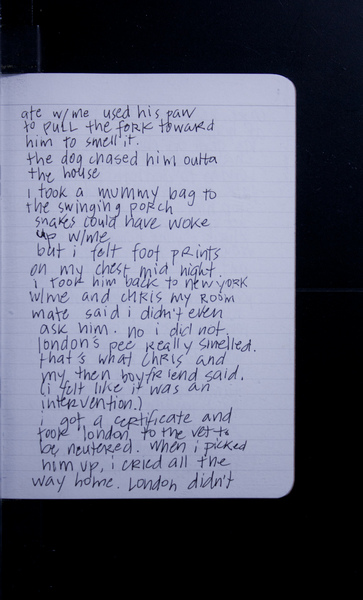 ate w/me used his paw
to PULL the fork toward
him to smell it.
the dog chased him outta
the house
i took a mummy bag to
the swinging porch
snakes could have woke
up w/me
but i felt foot prints
on my chest mid night.
i took him back to new york
w/me and chris my room
mate said i didn't even
ask him. no i did not.
london's pee really smelled.
that's what chris and
my then boyfriend said.
(i felt like it was an
intervention.)
i got a certificate and
took london to the vet to
be neutered. when i picked
him up, i cried all the
way home. London didn't